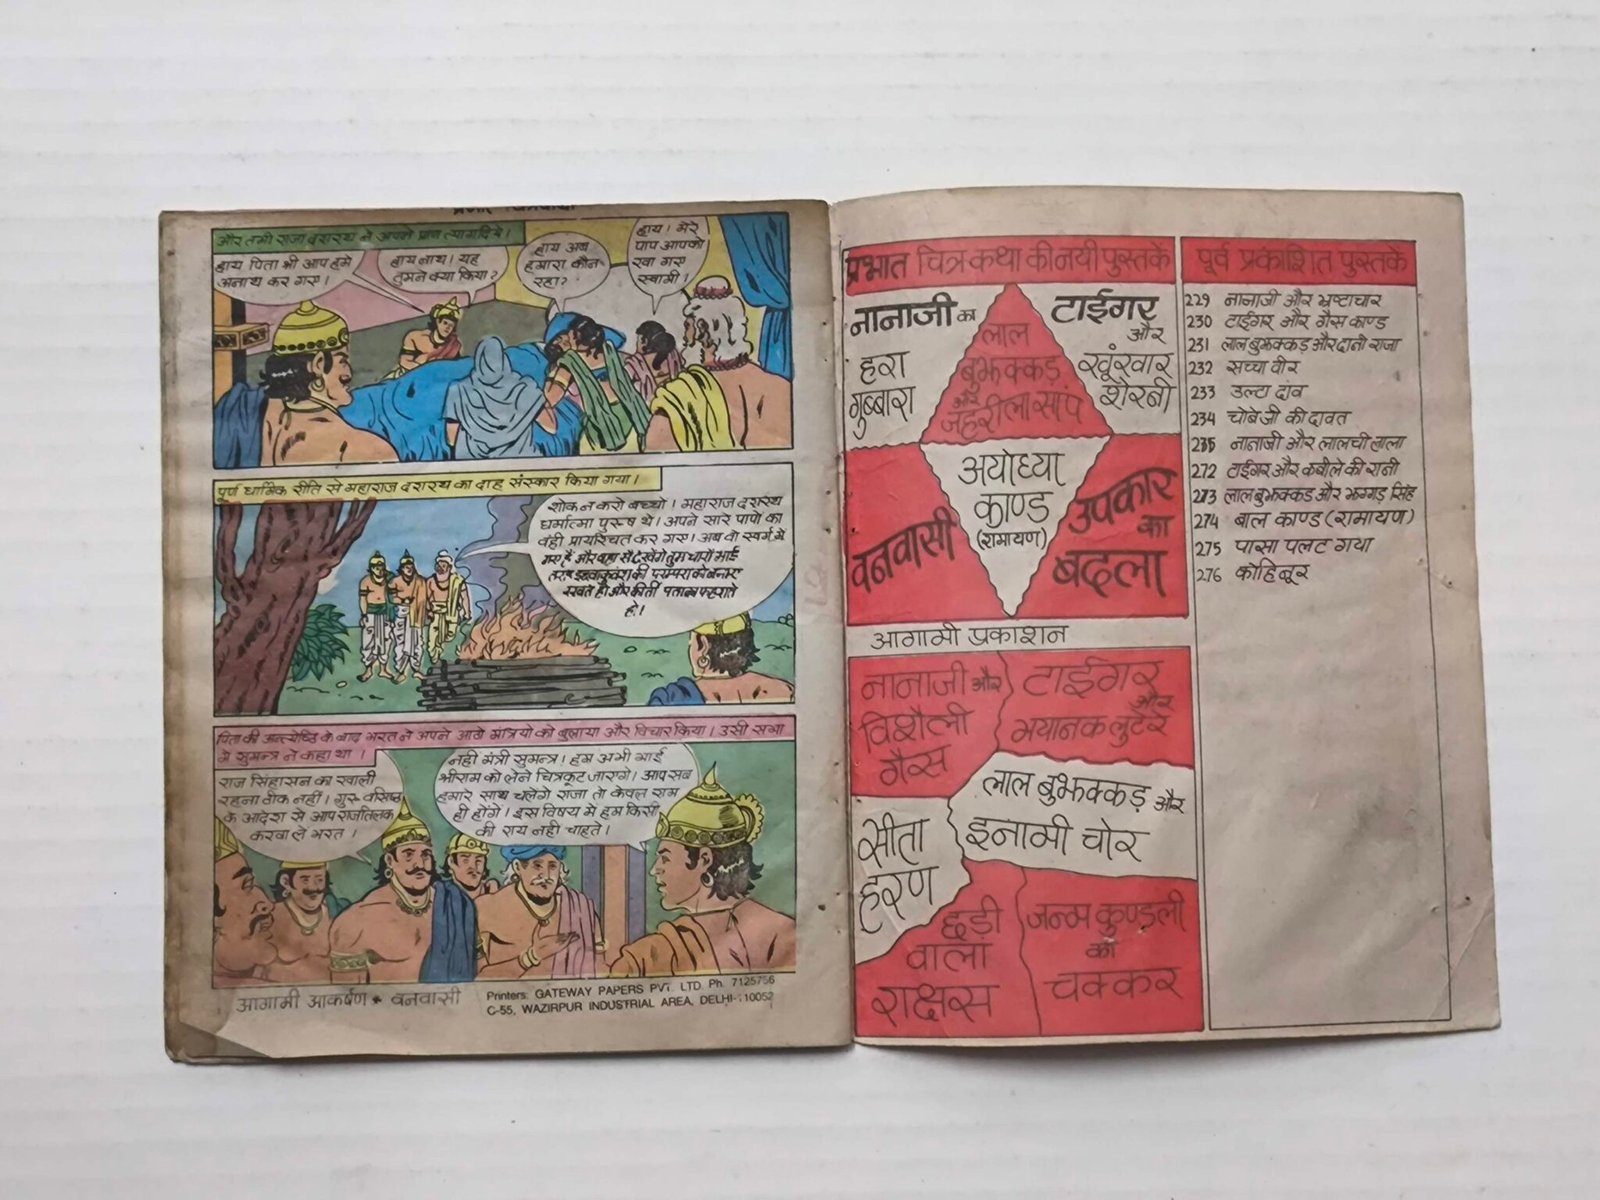 और तभी राजा दशरथ ने अपने प्राण त्याग दिये।
हाय पिता श्री आप हमे
अनाथ कर गए।
हाय नाथ! यह
तुमने क्या किया?
हाय अब
हमारा कौन
रहा?
हाय! मेरे
पाप आपको
खा गए
स्वामी।
पूर्ण धार्मिक रीति से महाराज दशरथ का दाह संस्कार किया गया।
शोक न करो बच्चो। महाराज दशरथ
धर्मात्मा पुरुष थे। अपने सारे पापो का
वही प्रायश्चित कर गए। अब वो स्वर्ग में
गए है और वहा से देखेंगे तुम चारो भाई
इक्ष्वाकु वंश की परम्परा को बनाए
रखते हो और कीर्ती पताका फहराते
हो।
पिता की अन्त्येष्टि के बाद भरत ने अपने आठो मंत्रियो को बुलाया और विचार किया। उसी सभा
में सुमन्त्र ने कहा था।
राज सिंहासन का खाली
रहना ठीक नही। गुरु वसिष्ठ
के आदेश से आप राजतिलक
करवा ले भरत।
नही मंत्री सुमन्त्र! हम अभी भाई
श्रीराम को लेने चित्रकूट जाएगे। आप सब
हमारे साथ चलेगे राजा तो केवल राम
ही होंगे। इस विषय मे हम किसी
की राय नही चाहते।
आगामी आकर्षण * वनवासी
Printers: GATEWAY PAPERS PVT. LTD. Ph. 7125756
C-55, WAZIRPUR INDUSTRIAL AREA, DELHI-110052
प्रभात चित्रकथा की नयी पुस्तकें
नानाजी का
हरा
गुब्बारा
लाल
बुझक्कड़
और
जहरीला साप
टाईगर
और
खूंखार
शेरनी
वनवासी
अयोध्या
काण्ड
(रामायण)
उपकार
का
बदला
आगामी प्रकाशन
नानाजी और
विशैली
गैस
टाईगर
और
भयानक लुटेरे
लाल बुझक्कड़ और
इनामी चोर
सीता
हरण
छड़ी
वाला
राक्षस
जन्म कुण्डली
का
चक्कर
पूर्व प्रकाशित पुस्तकें
229 नानाजी और भ्रष्टाचार
230 टाईगर और गैस काण्ड
231 लाल बुझक्कड़ और दानी राजा
232 सच्चा वीर
233 उल्टा दांव
234 चोबेजी की दावत
235 नानाजी और लालची लाला
272 टाईगर और कबीले की रानी
273 लाल बुझक्कड़ और झगगड़ सिंह
274 बाल काण्ड (रामायण)
275 पासा पलट गया
276 कोहिनूर